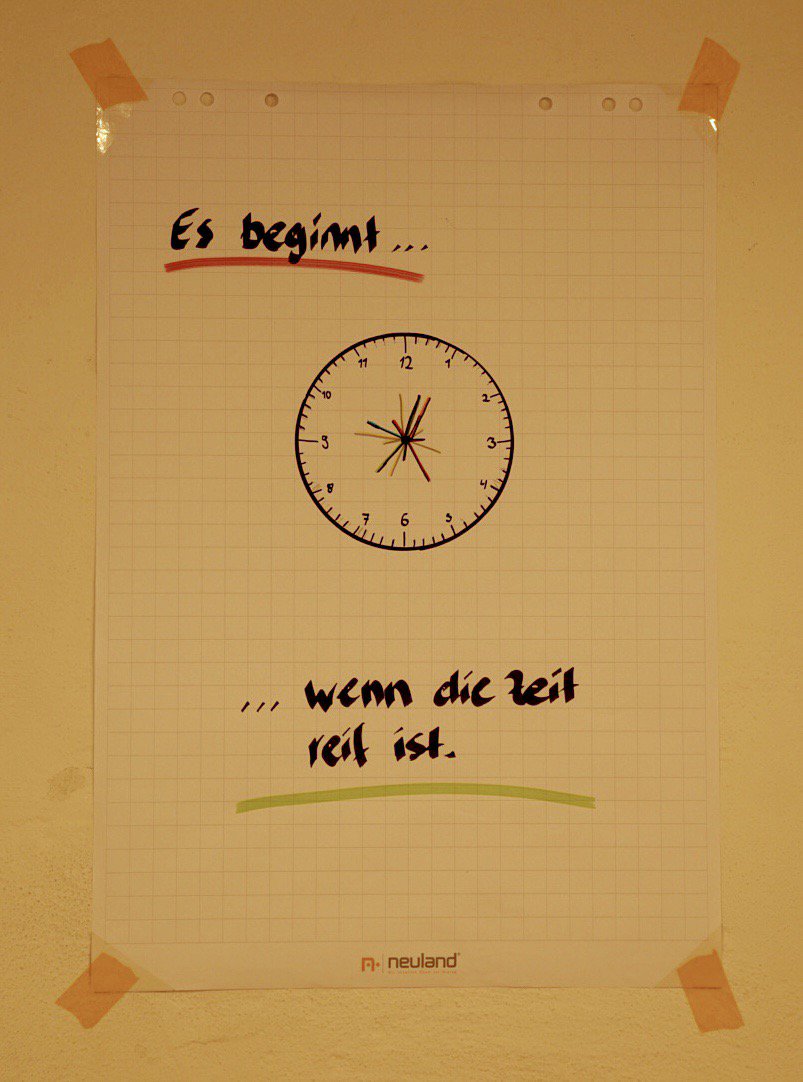 Es beginnt...
12
11
1
10
2
9
3
8
4
7
5
6
... wenn die Zeit
reif ist.
neuland